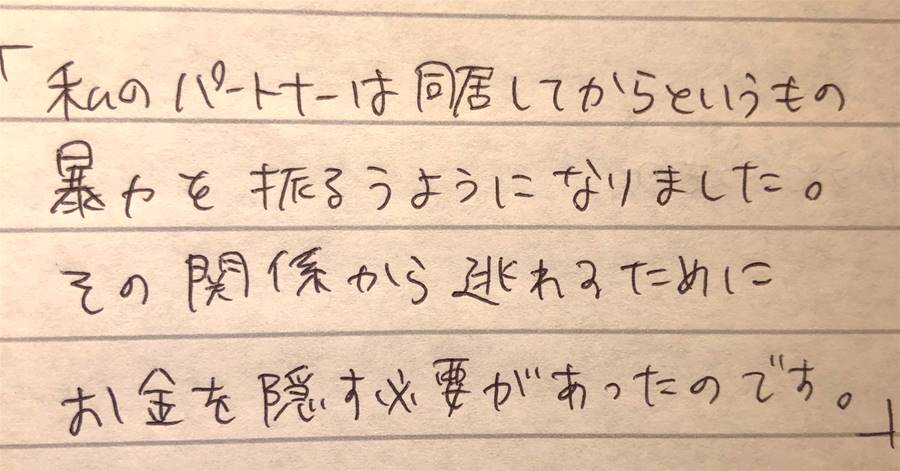 「私のパートナーは同居してからというもの
暴力を振るうようになりました。
その関係から逃れるために
お金を隠す必要があったのです。」